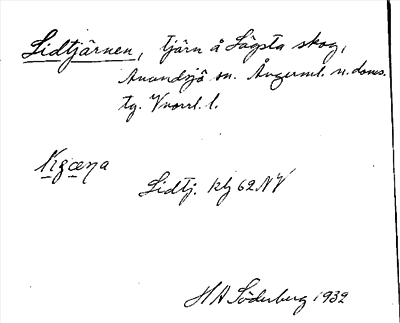 Lidtjärnen, tjärn å Lägsta skog,
Anundsjö sn. Ångerml. n. doms.
tg. Vnorrl. l.
Lidtj. klj 62 NV
H A Söderberg 1932